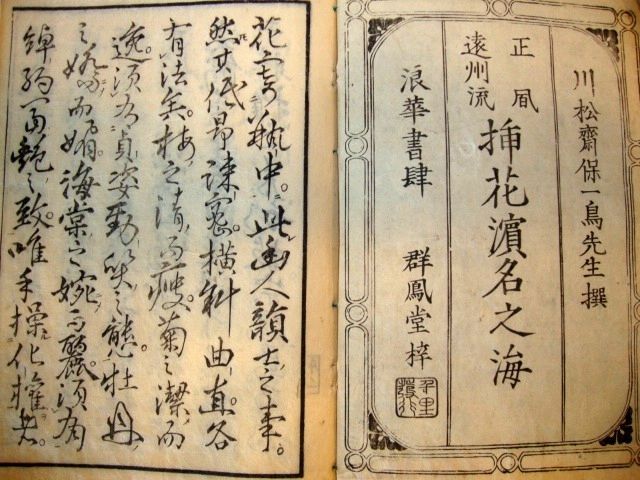 川松齋保一鳥先生撰
正凬
遠州流
挿花濵名之海
浪華書肆 群鳳堂梓
花寄瓶中。此幽人韻士之事。
然其低昂踈密。横斜曲直。各
有法矣。梅之清而痩。菊之潔而
逸。須有貞姿勁之態。牡丹
之嬌而媚。海棠之婉而麗。須有
綽約艶之致。唯手操化權者。